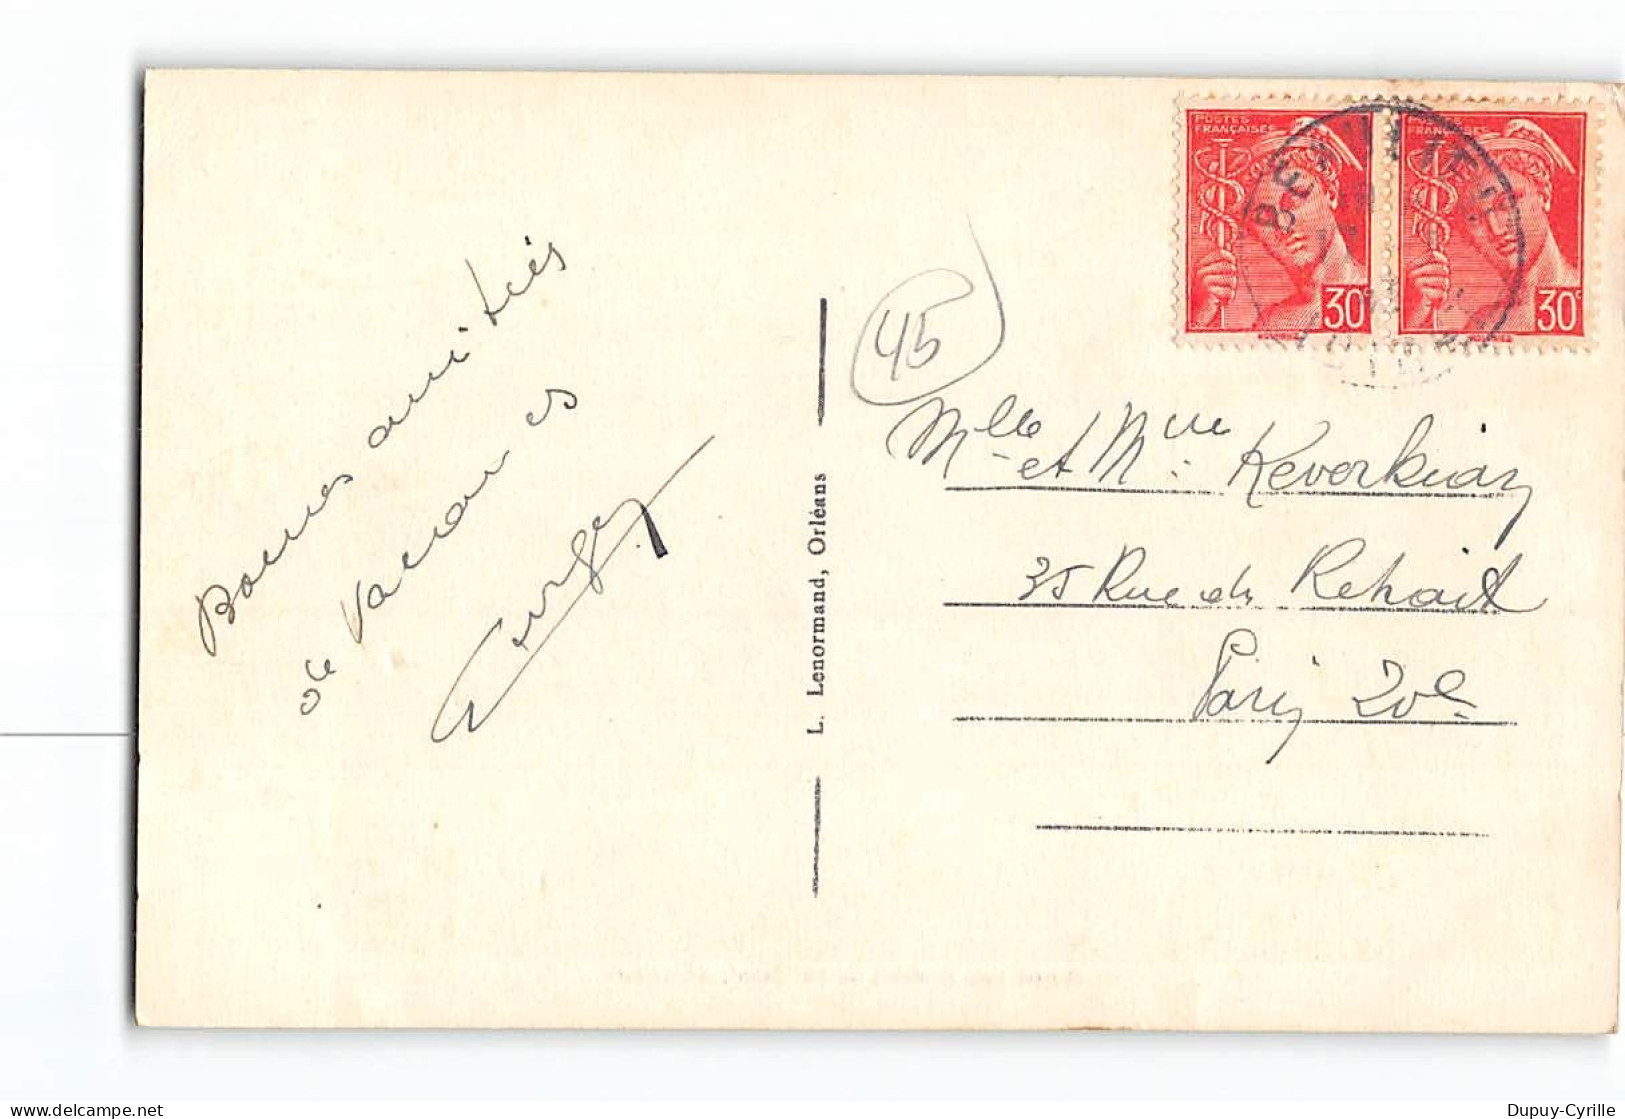 Bonnes amitiés
de Vacances
L. Lenormand, Orléans
45
POSTES
FRANÇAISES
30
POSTES
FRANÇAISES
30c
Mlle et Mme Keverkian
35 Rue du Retrait
Paris 20e
Dupuy-Cyrille